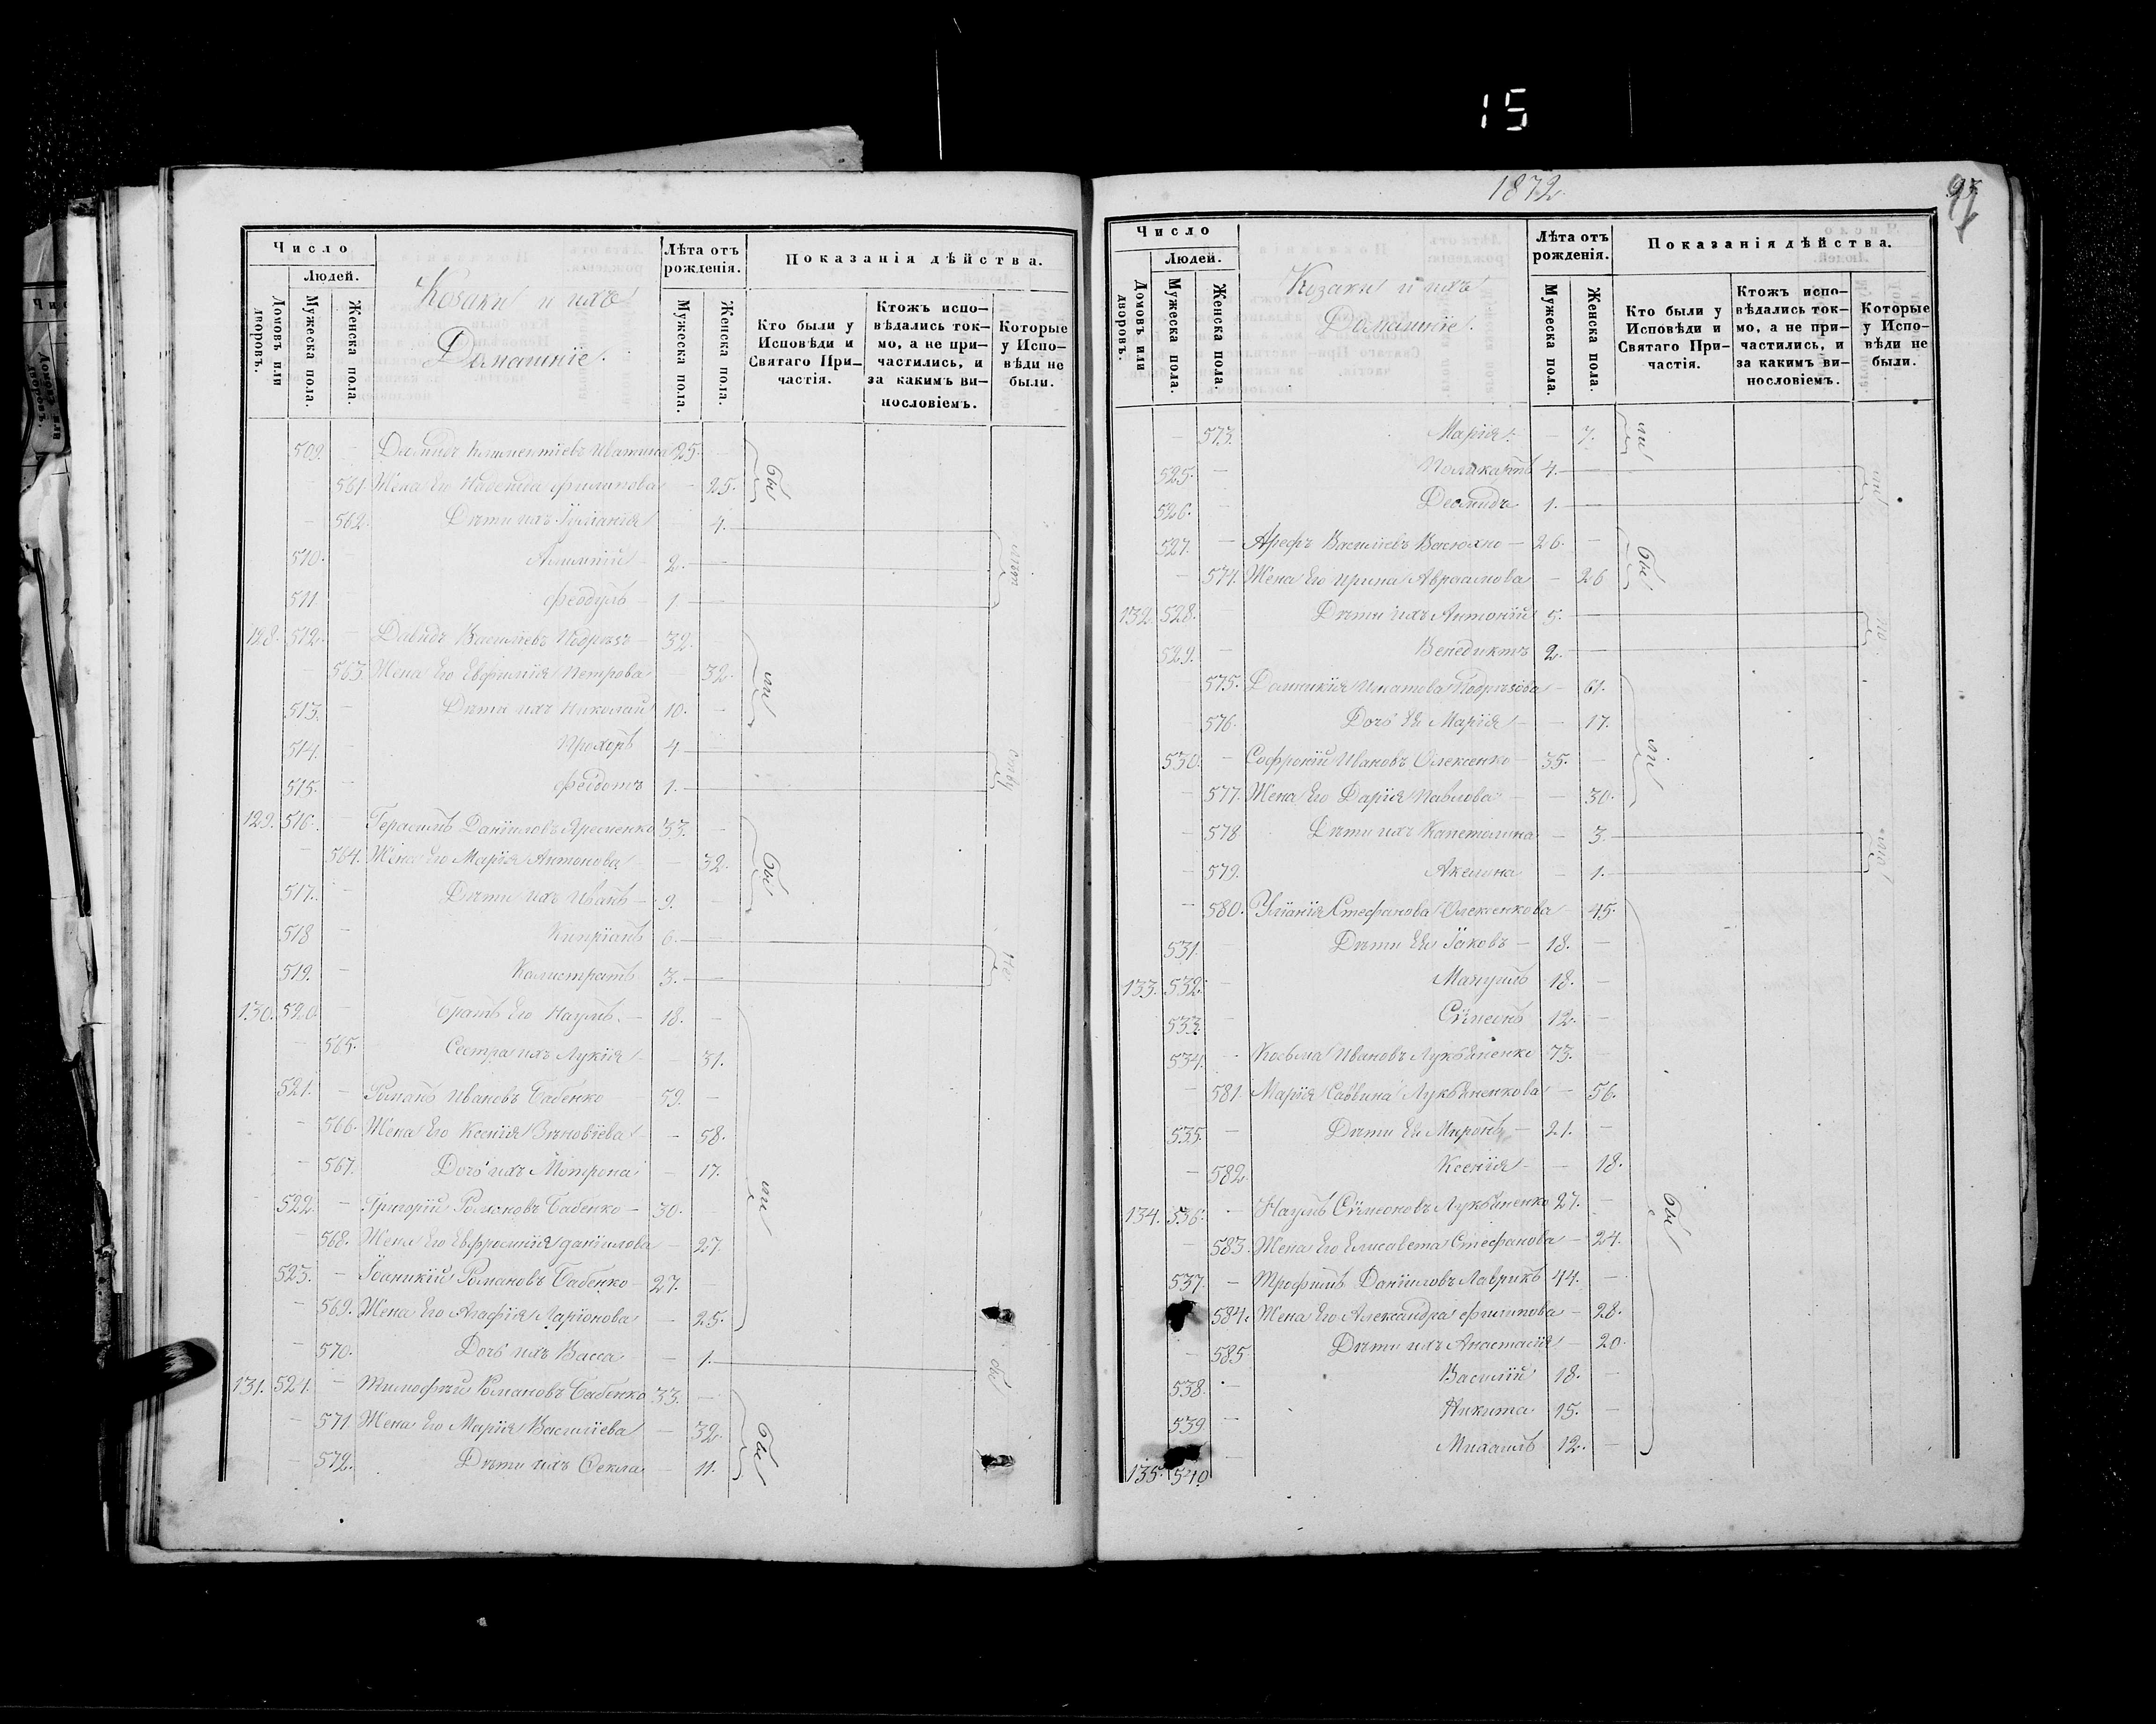 15
Число
Людей.
Домовъ или дворовъ.
Мужеска пола.
Женска пола.
Козаки и ихъ
Домашніе.
Лѣта отъ рожденія.
Мужеска пола.
Женска пола.
Показанія дѣйства.
Кто были у Исповѣди и Святаго Причастія.
Ктожъ исповѣдались токмо, а не причастились, и за какимъ винословіемъ.
Которые у Исповѣди не были.
509. — 25. —
561. Жена Его Надежда Филипова — 25.
562. Дѣти ихъ — 4.
510. — 2. —
511 — Феодулъ — 1. —
128. 512. — Давидъ Василіевъ Подрѣзъ — 32.
563. Жена Его Евфимія Петрова — 32.
513. — Дѣти ихъ Николай 10. —
514. Прохоръ 4 —
515. — Феодотъ 1. —
129. 516. — Герасимъ Даніиловъ Яременко 33. —
— 564. Жена Его Марія Антонова — 32.
517. — Дѣти ихъ Иванъ — 9. —
518 — Кипріанъ 6. —
519. — Калистратъ 3. —
130. 520. — братъ Его Наумъ. — 18. —
— 565. Сестра ихъ Лукія — 31.
521. — Романъ Ивановъ Бабенко 59. —
— 566. Жена Его Ксенія Зѣновіева — 58.
— 567. Дочь ихъ Мотрона — 17.
522. — Григорій Романовъ Бабенко — 30. —
— 568. Жена Его Евфросинія Даніилова — 27.
523. — Іоаникій Романовъ Бабенко — 27. —
— 569. Жена Его Агафія Ларіонова — 25.
— 570. Дочь ихъ Васса — 1. —
131. 524. — Тимофѣй Романовъ Бабенко 33. —
— 571 Жена Его Марія Василіева — 32.
— 572. Дѣти ихъ Ѳекла — 11.
бы
ли
бы
ли
бы
1872.
Число
Людей.
Домовъ или дворовъ.
Мужеска пола.
Женска пола.
Козаки и ихъ
Домашніе.
Лѣта отъ рожденія.
Мужеска пола.
Женска пола.
Показанія дѣйства.
Кто были у Исповѣди и Святаго Причастія.
Ктожъ исповѣдались токмо, а не причастились, и за какимъ винословіемъ.
Которые у Исповѣди не были.
— 573. Марія — 7.
525. — Поликарпъ 4. —
526. — Деомидъ 1. —
527. — Арефъ Василіевъ Васюхно — 26. —
— 574. Жена Его Ирина Авраамова — 26
132. 528. — Дѣти ихъ Антоній 5. —
529. — Венедиктъ 2. —
— 575. Игнатова Подрѣзова — 61.
— 576. Дочь Ея Марія — 17.
530. — Софроній Ивановъ Олексенко — 35. —
— 577. Жена Его Дарія Павлова — 30.
— 578 Дѣти ихъ Капетолина — 3. —
— 579. Акелина — 1. —
— 580. Уліанія Стефанова Олексенкова 45.
531. Дѣти Ея Іаковъ — 18. —
133. 532. — Мануилъ 18. —
533. — Сѵмеонъ 12. —
534. — Косьма Ивановъ Лукьяненко 73. —
— 581. Марія Саввина Лукьяненкова — 56.
535. — Дѣти Ея Миронъ — 21. —
— 582. Ксенія — 18.
134. 536. — Наумъ Сѵмеоновъ Лукьяненко 27. —
— 583. Жена Его Елисавета Стефанова — 24.
537. — Трофимъ Даніиловъ Лаврикъ 44. —
584. Жена Его Александра Филипова — 28.
— 585 Дѣти ихъ Анастасія — 20.
538. — Василій 18. —
539. — Никита 15. —
135. 540. — Михаилъ 12. —
ли
бы
ли
бы